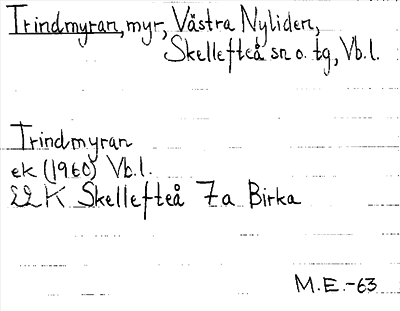 Trindmyran, myr, Västra Nyliden,
Skellefteå sn o. tg, Vb.l.
Trindmyran
ek (1960) Vb.l.
22 K Skellefteå 7a Birka
M.E.-63